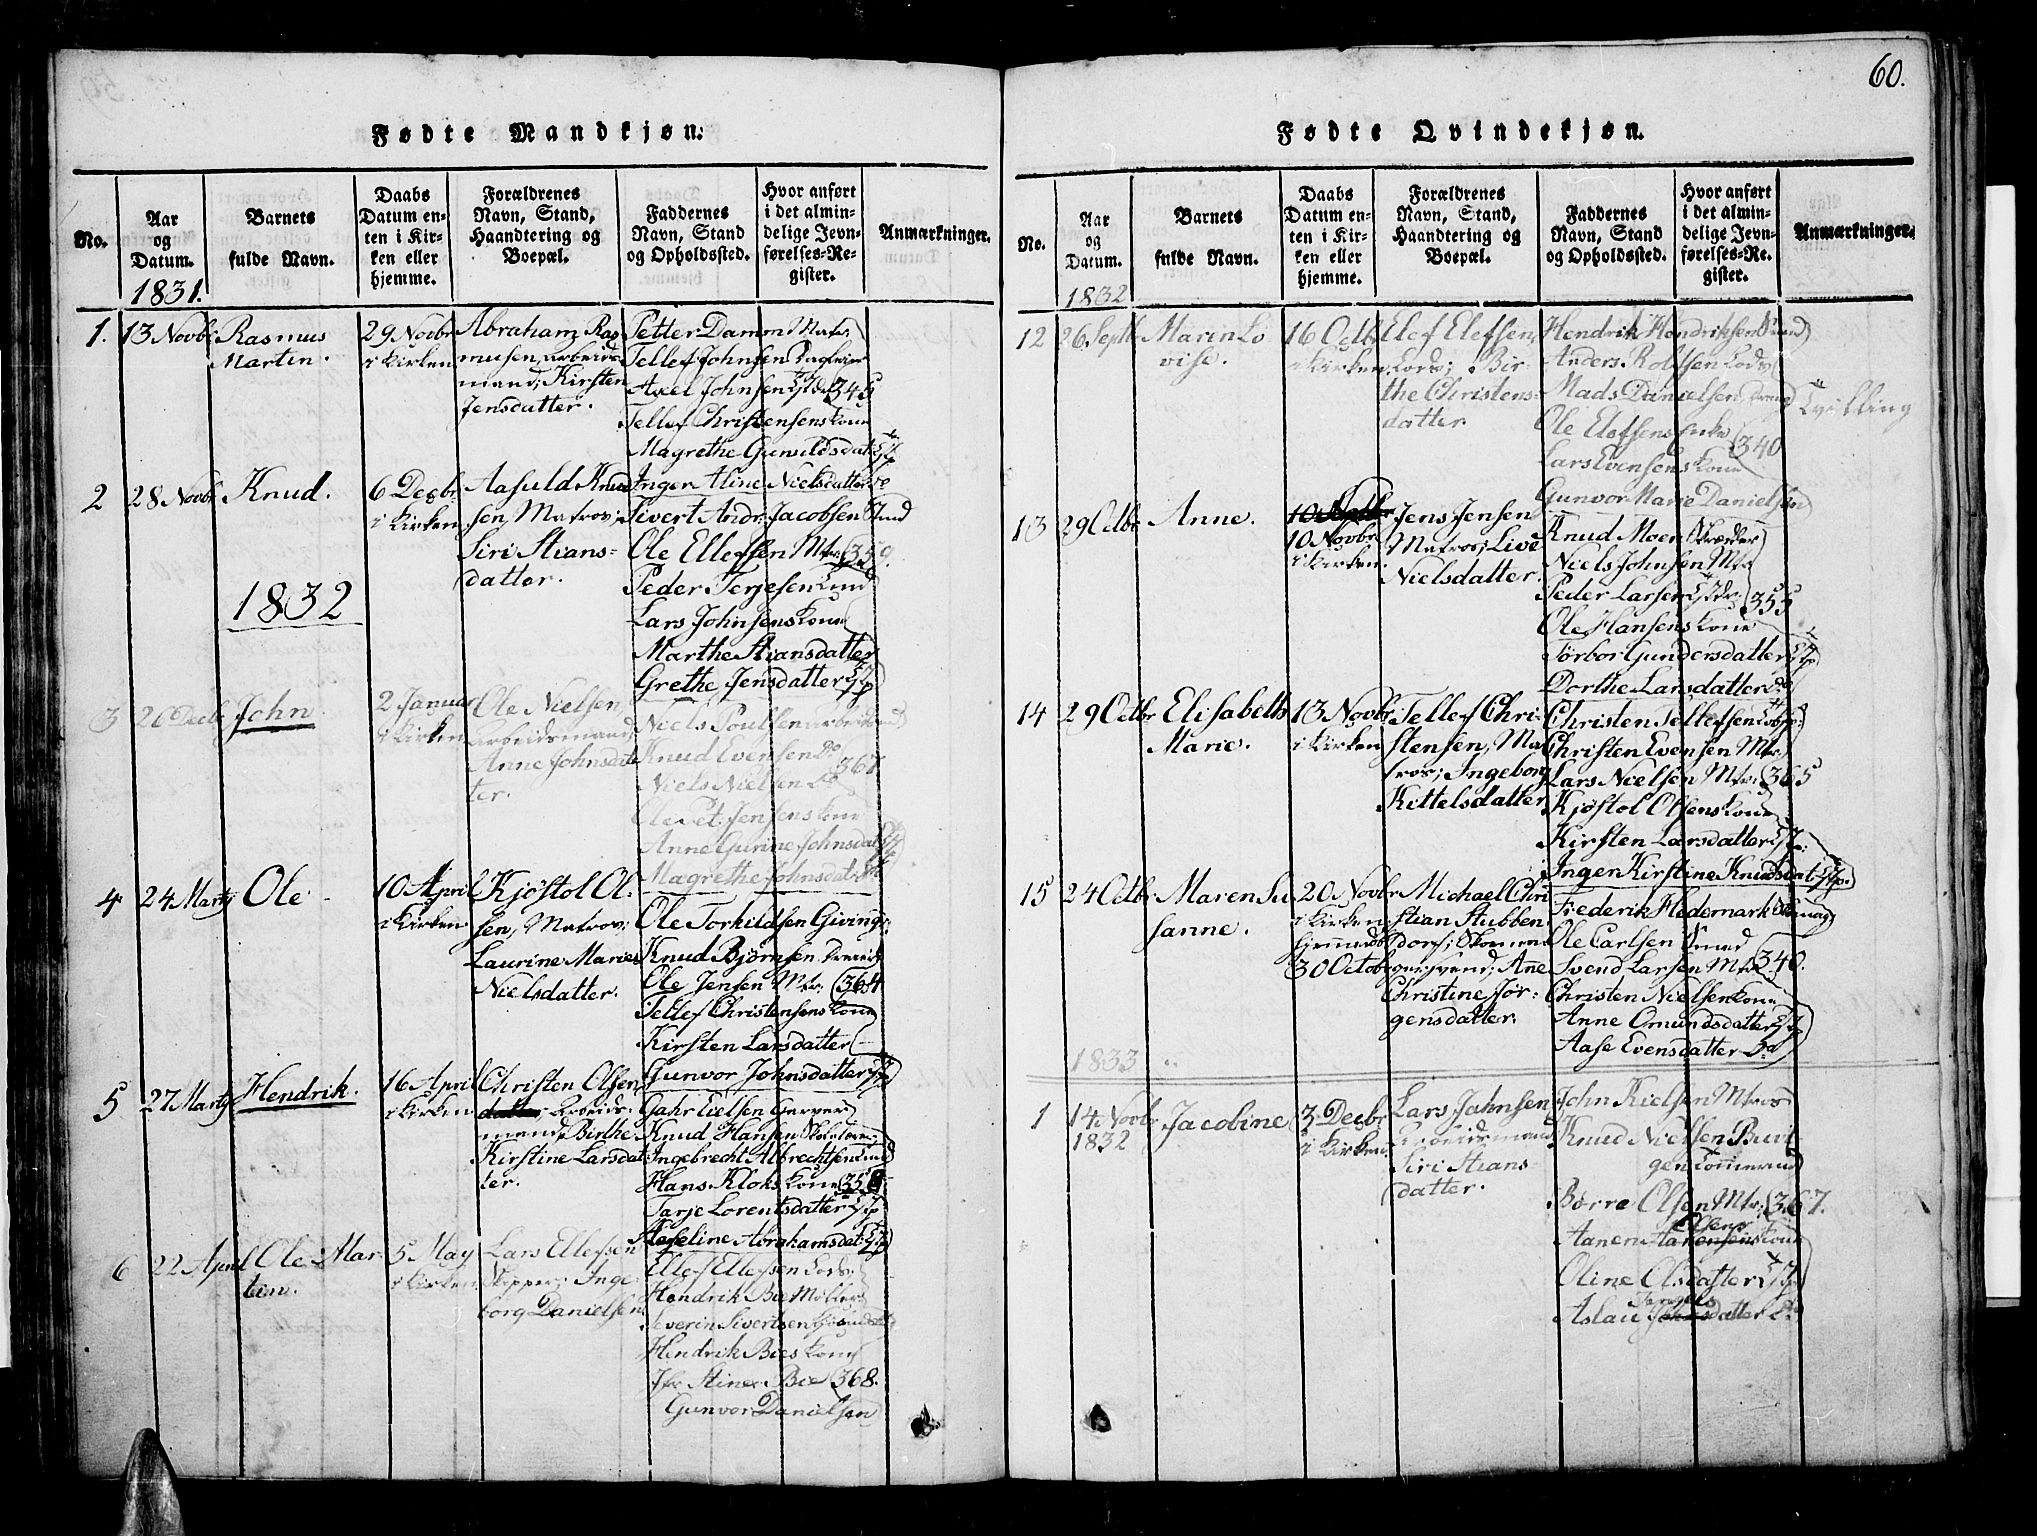 60.
Fødte Mandkjøn.
No.
Aar og Datum.
Barnets fulde Navn.
Daabs Datum enten i Kirken eller hjemme.
Forældrenes Navn, Stand, Haandtering og Boepæl.
Faddernes Navn, Stand og Opholdssted.
Hvor anført i det almindelige Jevnførelses-Register.
Anmærkninger.
1831.
1. 13 Novbr Rasmus Martin.
29 Novbr i Kirken
Abraham Ras
musen, arbeids
mand; Kirsten
Jensdatter.
Petter Damm Matr:
Tellef Johnsen
Axel Johnsen 345
Tellef Christensens Kone
Magrethe Gunvildsdat:
2 28 Novbr Knud.
6 Decbr i Kirken
Aasuld Knud
sen, Matros;
Siri Stians-
datter.
Ingen Aline Nielsdatter
Sivert Andr: Jacobsen
Ole Ellefsen Mtr: 359.
Peder Terjesen
Lars Johnsens Kone
Marthe Stiansdatter
Grethe Jensdatter
1832
3 26 Decbr John
2 Januar i Kirken
Ole Nielsen
arbeidsmand
Anne Johnsdat
ter.
Niels Poulsen arbeidsmd
Knud Evensen do
Niels Nielsen do 367
Ole Pet: Jensens Kone
Anne Gurine Johnsdat
Magrethe Johnsdat:
4 24 Marty Ole
10 April i Kirken
Kjøstol Ol-
sen, Matros;
Laurine Marie
Nielsdatter.
Ole Torkildsen Giving
Knud Bjørnsen
Ole Jensen Mtr: 364
Tellef Christensens Kone
Kirsten Larsdatter
Gunvor Johnsdatter
5 27 Marty Hendrik.
16 April i Kirken
Christen Olsen,
Arbeids-
mand, Birthe
Kirstine Larsdat
ter.
Garver
Knud Hansen
Ingebrecht Albrechtsen
Hans Kloks Kone 35
Tarje Lorentsdatter
Aseline Abrahamsdat:
6 22 April Ole Mar
tin.
5 May i Kirken
Lars Ellefsen
Skipper; Inge
borg Danielsen
Ellef Ellefsen Lods.
Hendrik Bie Møller
Severin Sivertsen
Hendrik Bies Kone
Jfr Stine Bie 368.
Gunvor Danielsen
Fødte Qvindekjøn.
No.
Aar og Datum.
Barnets fulde Navn.
Daabs Datum enten i Kirken eller hjemme.
Forældrenes Navn, Stand, Haandtering og Boepæl.
Faddernes Navn, Stand og Opholdssted.
Hvor anført i det almindelige Jevnførelses-Register.
Anmærkninger.
1832
12 26 Septb Maren Lo
vise.
16 Octb i Kirken
Elef Elefsen,
Lods; Bir-
the Christens-
datter
Hendrik Hendriksen
Anders Rolfsen Lods
Mads Danielsen
Ole Elefsens Enke 340
Lars Evensens Kone
Gunvor Marie Danielsen
Tvilling
13 29 Octbr Anne.
10 Novbr i Kirken
Jens Jensen
Matros; Live
Nielsdatter.
Knud Moer Skræder
Niels Johnsen Mtr
Peder Larsen 355
Ole Hansens Kone
Tørbor Gundersdatter
Dorthe Larsdatter do
14 29 Octbr Elisabeth
Marie.
13 Novbr i Kirken
Tellef Chri-
stensen, Ma
tros; Ingeborg
Kittelsdatter
Christen Tellefsen
Christen Evensen Mtr
Lars Nielsen Mtr: 365
Kjøstol Olsens Kone
Kirsten Larsdatter
Ingen Kirstine Knudsdat
15 24 Octbr Maren Su
sanne.
20 Novbr i Kirken
hjemmedøbt
30 Octob
Michael Chri
stian Stubben
dorf; Skomagersvend; Anne
Christine Jør-
gensdatter.
Frederik Hedemark Skomag
Ole Carlsen Smed
Svend Larsen Mtr 340.
Christen Nielsen Kone
Anne Omundsdatter
Aase Evensdatter do
1833
1 14 Novbr 1832 Jacobine
3 Decbr i Kirken
Lars Johnsen
Arbeidsmand
Siri Stians-
datter.
John Nielsen Mtros
Knud Nielsen Buvi-
gen Tømmermd
Børre Olsen Mtr: 367.
Aanen Olsens Kone
Oline Olsdatter
Aslau Jørgensdatter do